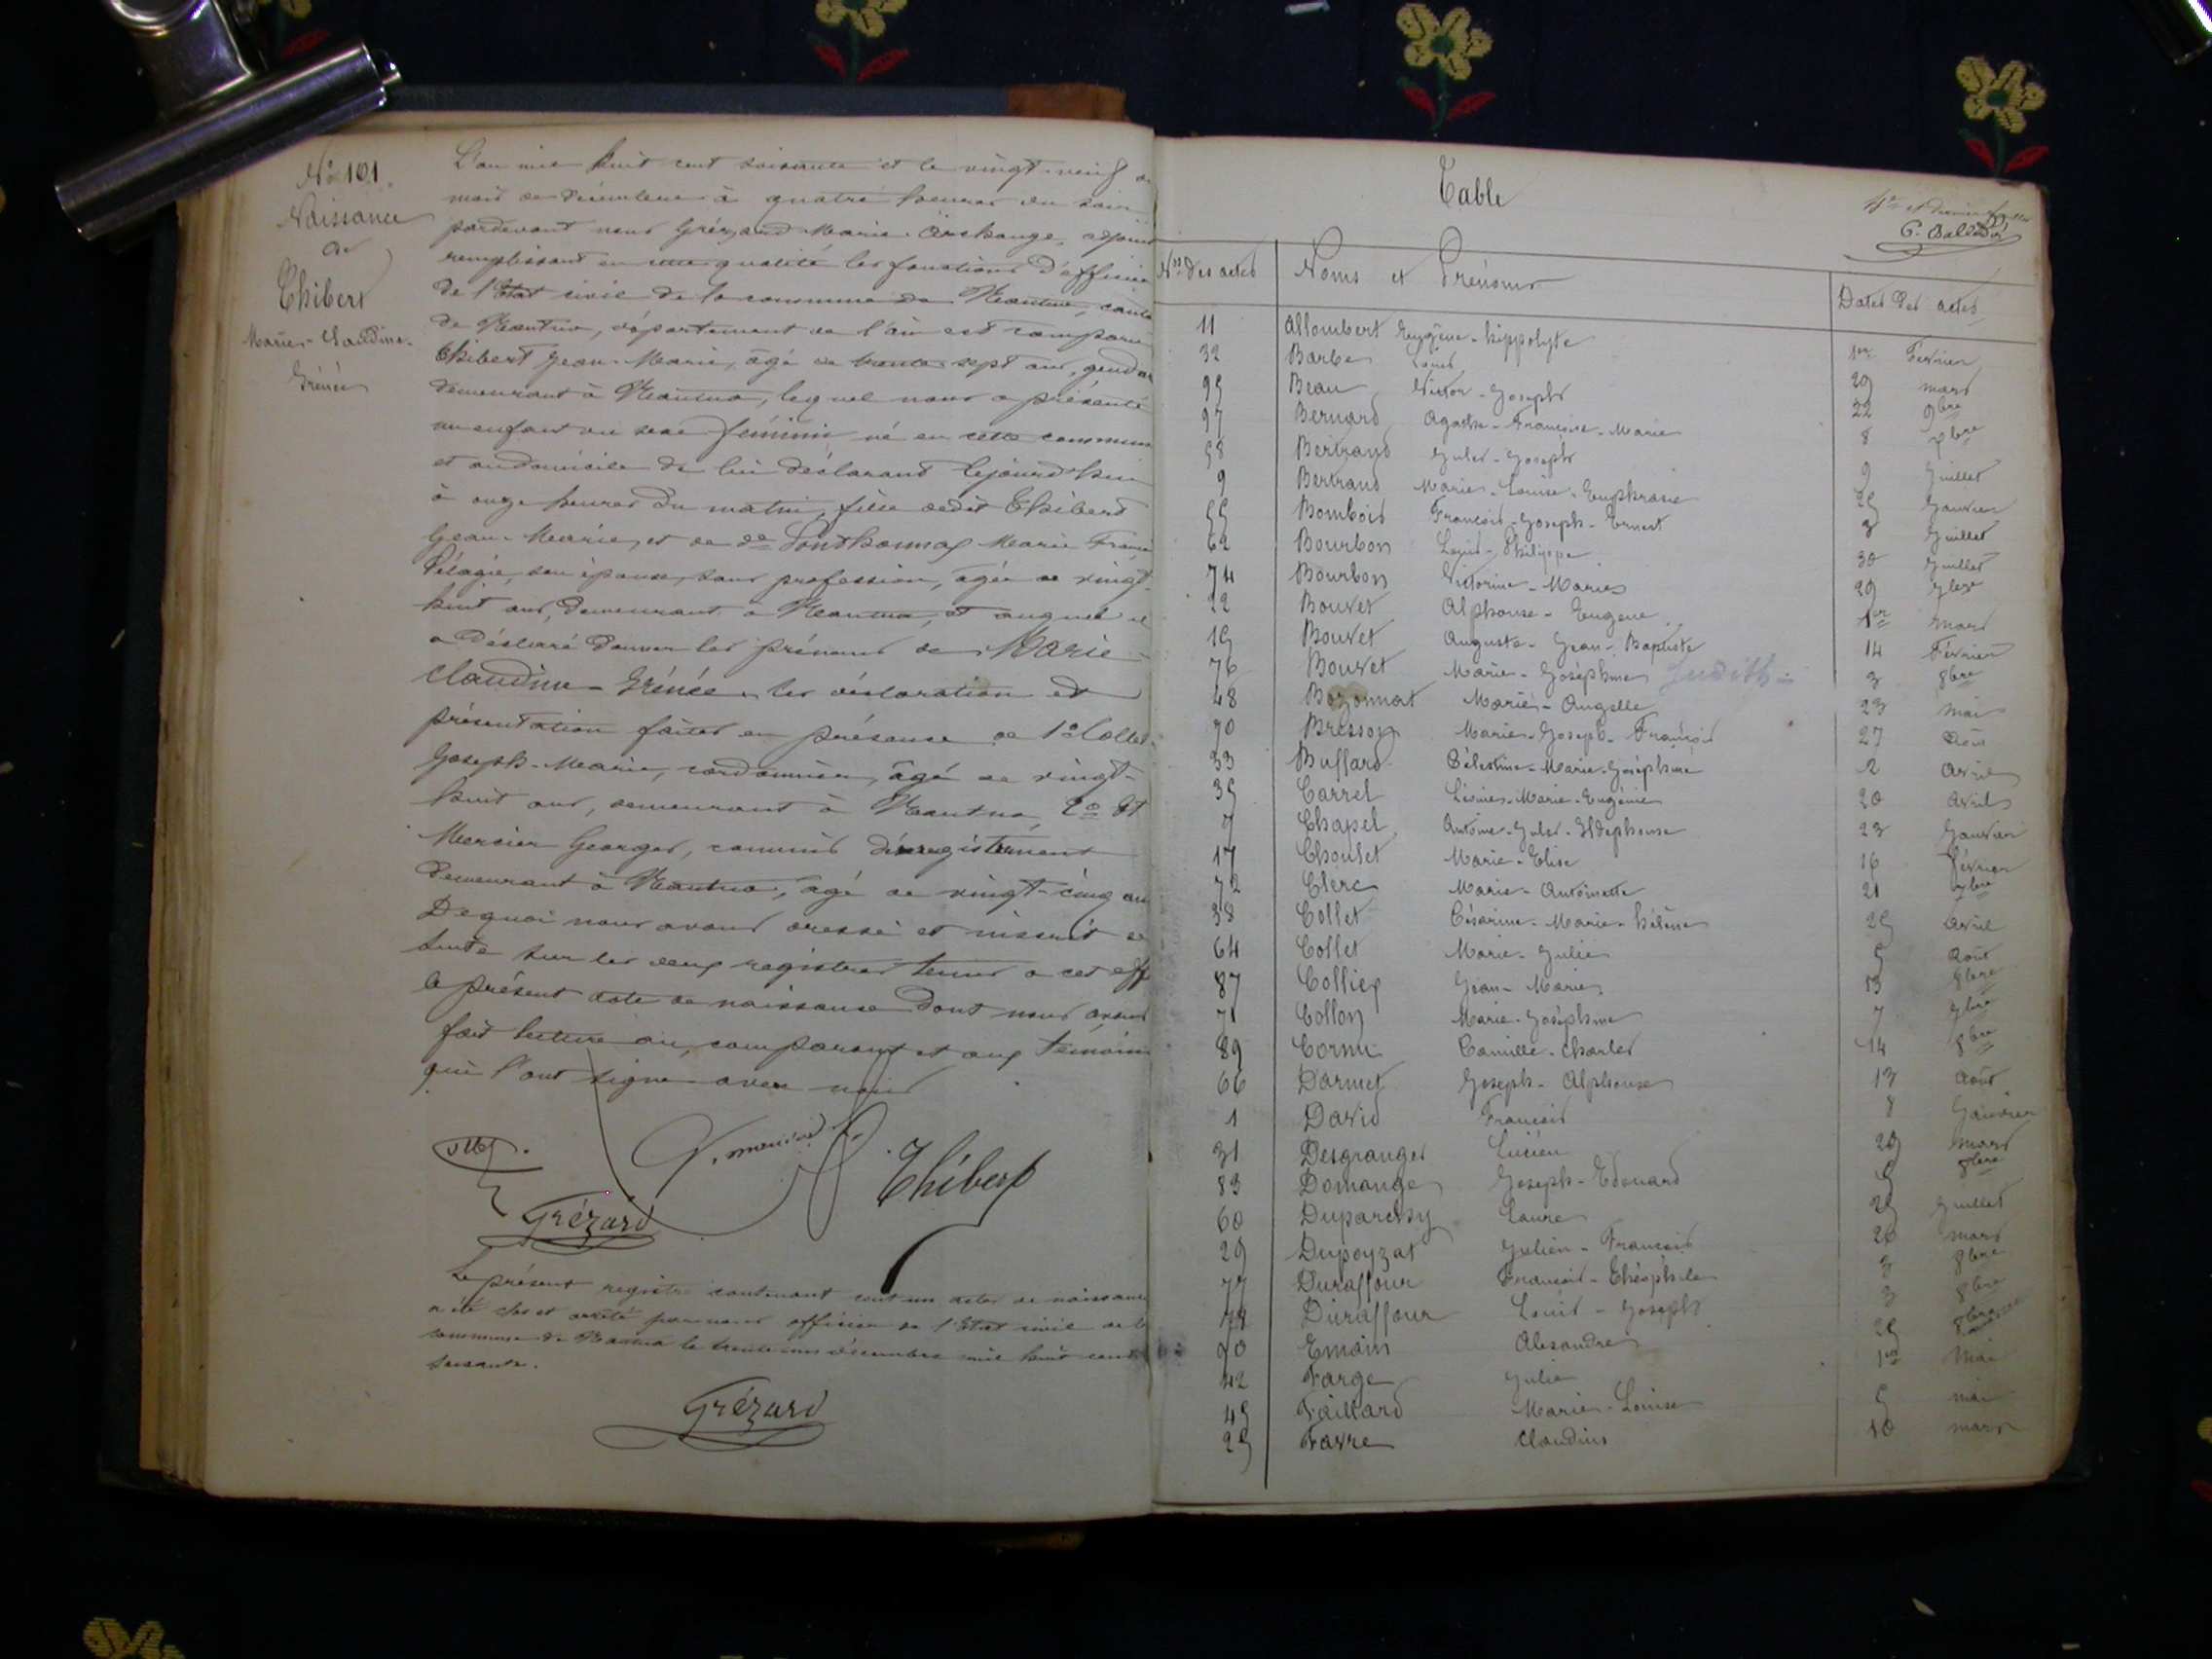 N° 101
Naissance
de
Thibert
Marie-Claudine-
Irénée
L'an mil huit cent soixante et le vingt-neuf
mois de décembre à quatre heures du soir
pardevant nous Grézard Marie-Archange, adjoint
remplissant en cette qualité les fonctions d'officier
de l'Etat civil de la commune de Nantua, canton
de Nantua, département de l'ain est comparu
Thibert Jean-Marie, âgé de trente sept ans,
demeurant à Nantua, lequel nous a présenté
un enfant du sexe féminin né en cette commune
et au domicile de lui déclarant cejourd'hui
à onze heures du matin, fille dudit Thibert
Jean-Marie, et de Marie
Pélagie, son épouse, sans profession, âgée de vingt-
huit ans, demeurant à Nantua, et auquel il
a déclaré donner les prénoms de Marie-
Claudine-Irénée. les déclaration et
présentation faites en présence de 1° Collet
Joseph-Marie, cordonnier, âgé de vingt-
huit ans, demeurant à Nantua, 2° et
Mercier Georges, commis d'enregistrement
demeurant à Nantua, âgé de vingt-cinq ans
De quoi nous avons dressé et inscrit de
suite sur les deux registres tenus a cet eff
le présent acte de naissance dont nous avons
fait lecture au comparant et aux témoins
qui l'ont signé avec nous
G. mercier Thibert
Grézard
Le présent registre contenant cent un actes de naissance
a été clos et arrêté par nous officier de l'Etat civil de la
commune de Nantua le trente un décembre mil huit cent
soixante.
Grézard
Table
Nos des actes Noms et Prénoms Dates des actes
11 Allombert Eugène-hippolyte 1er Février
32 Barbe Louis 29 mars
95 Beau Victor-Joseph 22 9bre
97 Bernard Agathe-Françoise-Marie 8
58 Bertrand Jules-Joseph 9 Juillet
9 Bertrand Marie-Louise-Euphrasie 25 Janvier
55 Bombois François-Joseph-Ernest 3 Juillet
62 Bourbon Louis-Philippe 30 Juillet
74 Bourbon Victorine-Marie 29 7bre
22 Bouvet Alphonse-Eugene 1er mars
15 Bouvet Auguste-Jean-Baptiste 14 Février
76 Bouvet Marie-Joséphine Judith 3 8bre
48 Bozonnat Marie-Angelle 23 Mai
70 Bresson Marie-Joseph-François 27 Août
33 Buffard Célestine-Marie-Joséphine 2 Avril
35 Carrel Marie-Eugénie 20 Avril
7 Chapel Antoine-Jules-Ildephonse 23 Janvier
17 Choulet Marie-Elise 16 Février
72 Clerc Marie-Antoinette 21 7bre
38 Collet Césarine-Marie-hélène 25 Avril
64 Collet Marie-Julie 5 Août
87 Colliex Jean-Marie 13 8bre
71 Collon Marie-Joséphine 7 7bre
89 Cornu Camille-Charles 14 8bre
66 Darmet Joseph-Alphonse 13 Août
1 David François 8 Janvier
31 Desgranges Lucien 29 Mars
83 Domange Joseph-Edouard 5 8bre
60 Duparchy Laure 25 Juillet
29 Dupoyzat Julien-François 26 mars
77 Duraffour François-Théophile 3 8bre
78 Duraffour Louis-Joseph 3 8bre
90 Emain Alexandre 25 8bre
42 Farge Julie 1er Mai
45 Faillard Marie-Louise 5 mai
25 Favre Claudius 10 mars